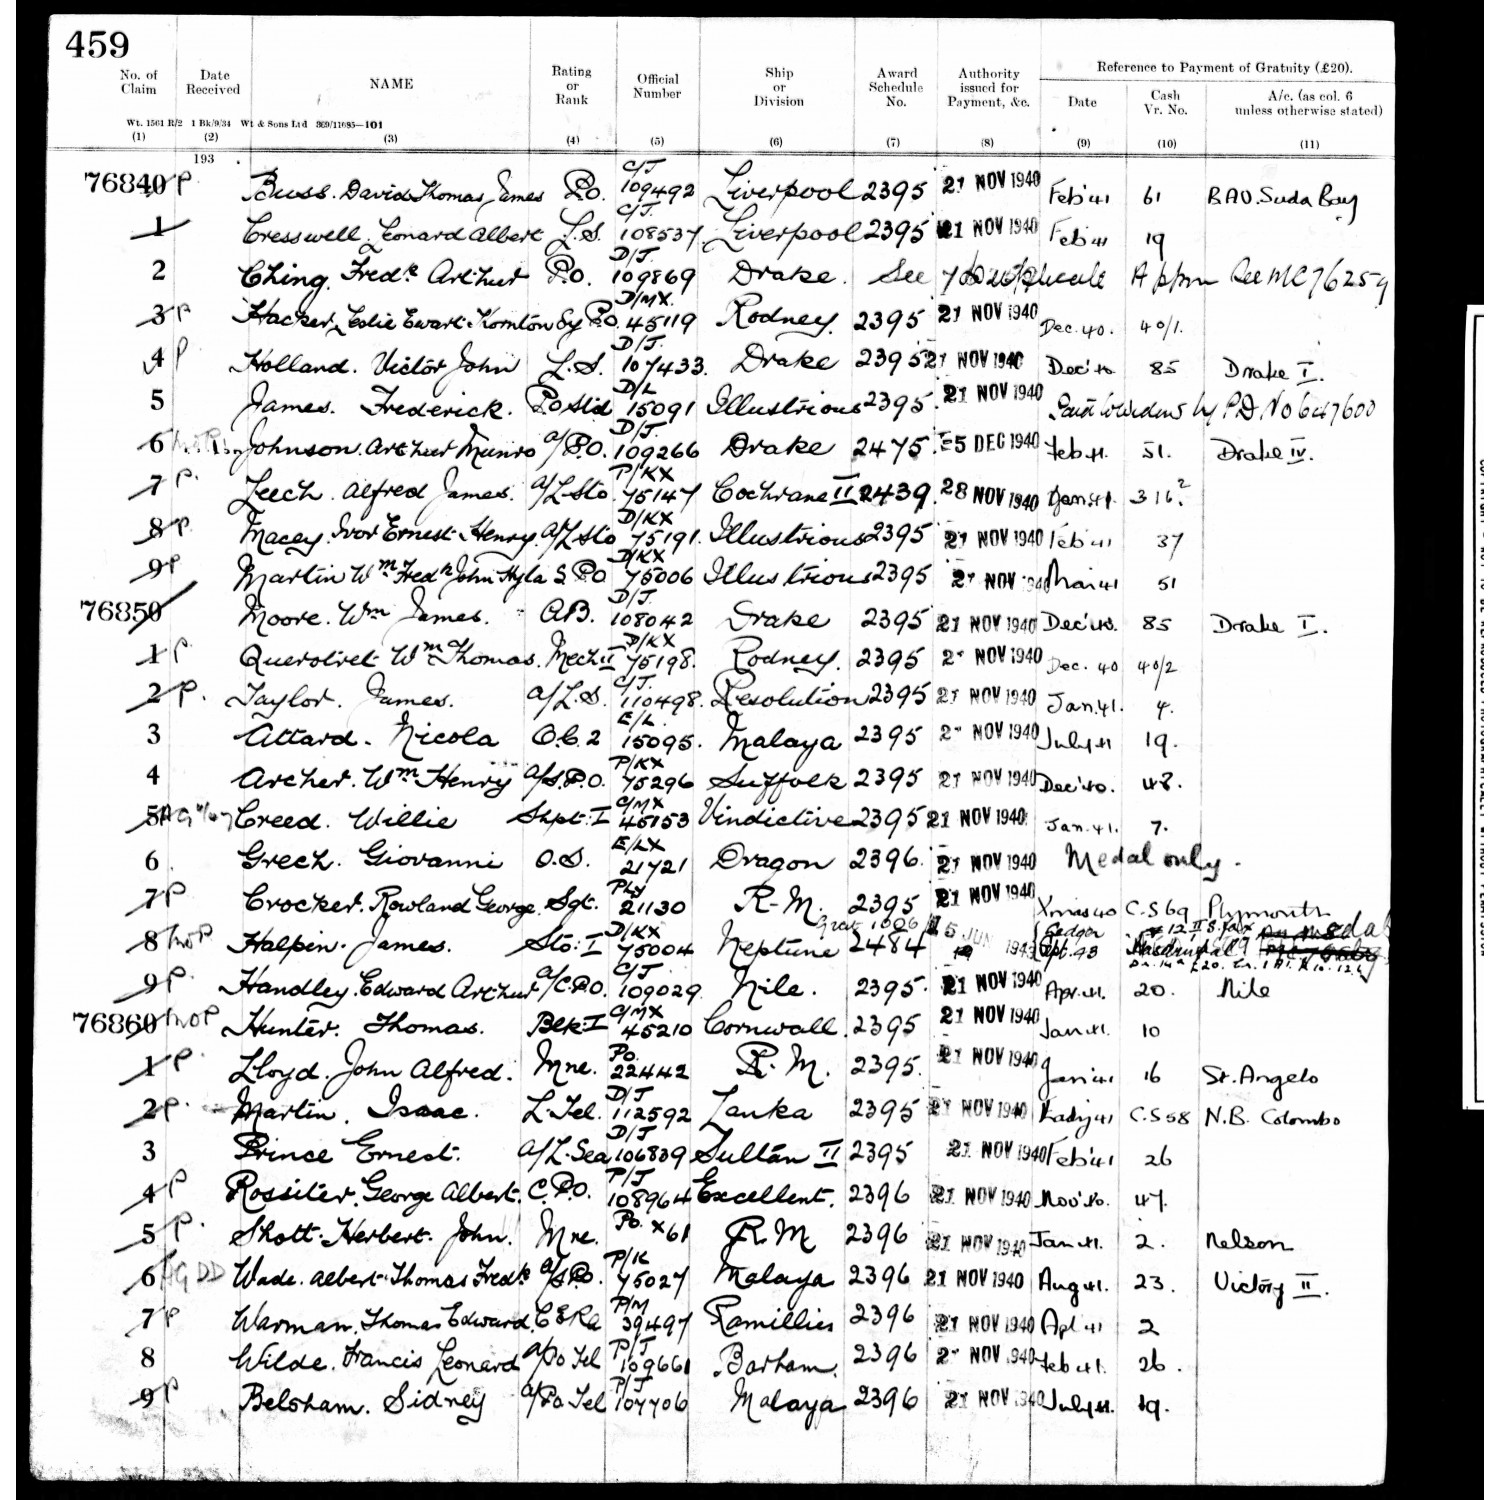 459
No. of Claim Date Received NAME Rating or Rank Official Number Ship or Division Award Schedule No. Authority issued for Payment, &c. Reference to Payment of Gratuity (£20).
Date Cash Vr. No. A/c. (as col. 6 unless otherwise stated)
Wt. 1561 R/2 1 Bk/9/34 Wt & Sons Ltd 369/11685—101
(1) (2) (3) (4) (5) (6) (7) (8) (9) (10) (11)
193
76840 P Buss. David Thomas James P.O. C/J. 109492 Liverpool 2395 21 NOV 1940 Feb'41 61 B.A.O. Suda Bay
1 Cresswell. Leonard Albert L.S. C/J. 108537 Liverpool 2395 21 NOV 1940 Feb'41 19
2 Ching. Fredk Arthur P.O. D/J. 109869 Drake. See MC76259
3 P Hacker, Leslie Ewart Sy P.O. D/MX. 45119 Rodney. 2395 21 NOV 1940 Dec. 40. 40/1.
4 P Holland. Victor John L.S. D/J. 107433. Drake 2395 21 NOV 1940 Dec'40 85 Drake I.
5 James. Frederick. P.O. Std D/L 15091 Illustrious 2395. 21 NOV 1940 Paid to widow by P.D. No 647600
6 Johnson. Arthur Munro a/P.O. D/J. 109266 Drake 2475. 5 DEC 1940 Feb 41. 51. Drake IV.
7 P. Leech. Alfred James. a/L. Sto. P/KX 75147 Cochrane II 2439. 28 NOV 1940 Jan. 41. 316?
8 P. Macey. Ivor Ernest Henry. a/L Sto D/KX 75191. Illustrious 2395 21 NOV 1940 Feb'41 37
9 P Martin Wm Fredk John Hyla S.P.O D/KX 75006 Illustrious 2395 21 NOV Mar 41 51
76850 Moore. Wm James. A.B. D/J. 108042 Drake 2395 21 NOV 1940 Dec'40. 85 Drake I.
1 P. Wm Thomas. Mech II D/KX 75198. Rodney. 2395 21 NOV 1940 Dec. 40 40/2
2 P. Taylor. James. a/L.S. C/J. 110498. Resolution 2395 21 NOV 1940 Jan. 41. 4.
3 Attard. Nicola O.C.2 E/L. 15095. Malaya 2395 21 NOV 1940 July 41 19.
4 Archer. Wm Henry a/S.P.O. P/KX 75296 Suffolk 2395 21 NOV 1940 Dec'40. 48.
5 Creed. Willie Shpt. I C/MX 45153 Vindictive 2395 21 NOV 1940 Jan. 41. 7.
6 Grech. Giovanni O.S. E/LX 21721 Dragon 2396. 21 NOV 1940 Medal only.
7 P Crocker. Rowland George Sgt. Ply 21130 R.M. 2395 21 NOV 1940 Xmas 40 C.S 69 Plymouth
8 Halpin. James. Sto: I D/KX 75004 Neptune 2484 Sept. 43
9 P. Handley. Edward Arthur a/C.P.O. C/J 109029. Nile. 2395. 21 NOV 1940 Apr. 41. 20. Nile
76860 Hunter. Thomas. Blk: I C/MX 45210 Cornwall. 2395 21 NOV 1940 Jan 41. 10
1 P. Lloyd. John Alfred. Mne. Po. 22442 R.M. 2395. 21 NOV 1940 Jan'41 16 St. Angelo
2 P. Martin. Isaac. L. Tel. D/J 112592 Lanka 2395 21 NOV 1940 Lady 41 C.S 58 N.B. Colombo
3 Prince Ernest. a/L. Sea D/J 106839 Sultan II 2395 21 NOV 1940 Feb'41 26
4 P Rossiter. George Albert. C.P.O. P/J 108964 Excellent. 2396 21 NOV 1940 Nov'40. 47.
5 P. Shott. Herbert. John. Mne. Po. X61 R.M 2396 21 NOV 1940 Jan 41. 2. Nelson
6 Wade. Albert Thomas Fredk a/S.P.O. P/K 75027 Malaya 2396 21 NOV 1940 Aug 41. 23. Victory II.
7 P Warman. Thomas Edward. C.E.R.A P/M 39497 Ramillies 2396 21 NOV 1940 Apl'41 2
8 Wilde. Francis Leonard a/Po Tel P/J 109661 Barham. 2396 21 NOV 1940 Feb 41. 26.
9 P Belsham. Sidney a/Po Tel P/J 107706 Malaya 2396 21 NOV 1940 July 41. 19.